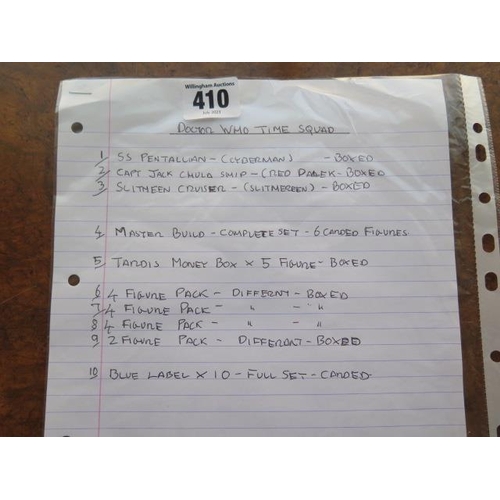 Willingham Auctions
410
July 2023
DOCTOR WHO TIME SQUAD
1 SS PENTALLIAN - (CYDERMAN) - BOXED
2 CAPT JACK CHULA SHIP - (RED DALEK - BOXED
3 SLITHEEN CRUISER - (SLITHEREEN) - BOXED
4 MASTER BUILD - COMPLETE SET - 6 CARDED FIGURES
5 TARDIS MONEY BOX X 5 FIGURE - BOXED
6 4 FIGURE PACK - DIFFERNT - BOXED
7 4 FIGURE PACK - " - "
8 4 FIGURE PACK - " - "
9 2 FIGURE PACK - DIFFERENT - BOXED
10 BLUE LABEL X 10 - FULL SET - CARDED